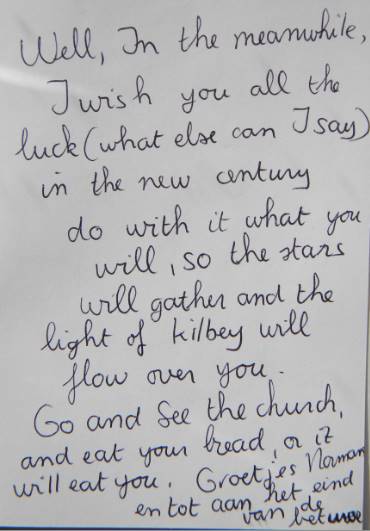 Well, In the meanwhile,
I wish you all the
luck (what else can I say)
in the new century
do with it what you
will, so the stars
will gather and the
light of kilbey will
flow over you.
Go and See the church,
and eat your bread, or it
will eat you. Groetjes Norman
en tot aan het eind
van de betuwe